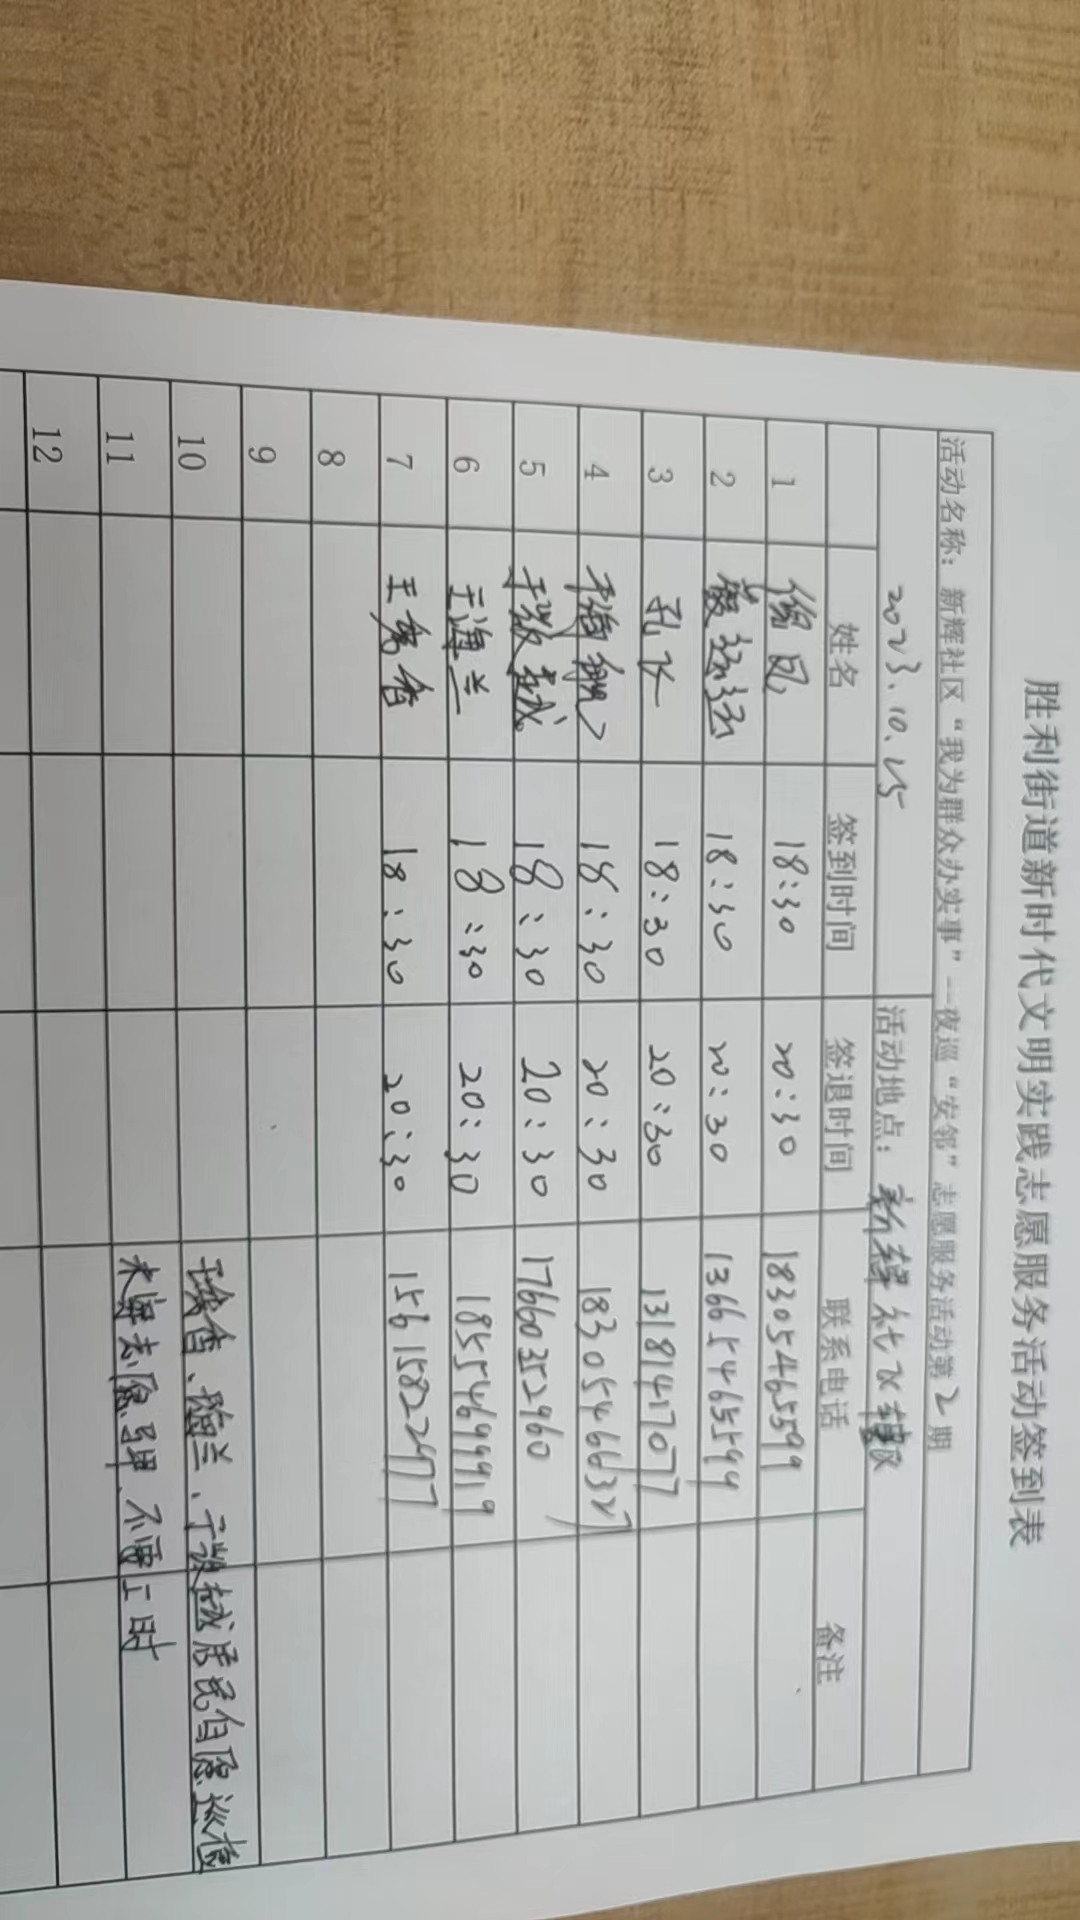 胜利街道新时代文明实践志愿服务活动签到表
活动名称：新辉社区“我为群众办实事”--夜巡“安邻”志愿服务活动第2期
2023.10.25 活动地点：新辉社区辖区
姓名 签到时间 签退时间 联系电话 备注
1 18:30 20:30 18305465599
2 18:30 20:30 13665465544
3 18:30 20:30 13181417077
4 18:30 20:30 18305466327
5 于散城 18:30 20:30 17660352960
6 王海兰 18:30 20:30 18554699919
7 王秀香 18:30 20:30 15615822977
8
9
10 居民自愿巡值
11 未实志愿马甲、不需工时
12